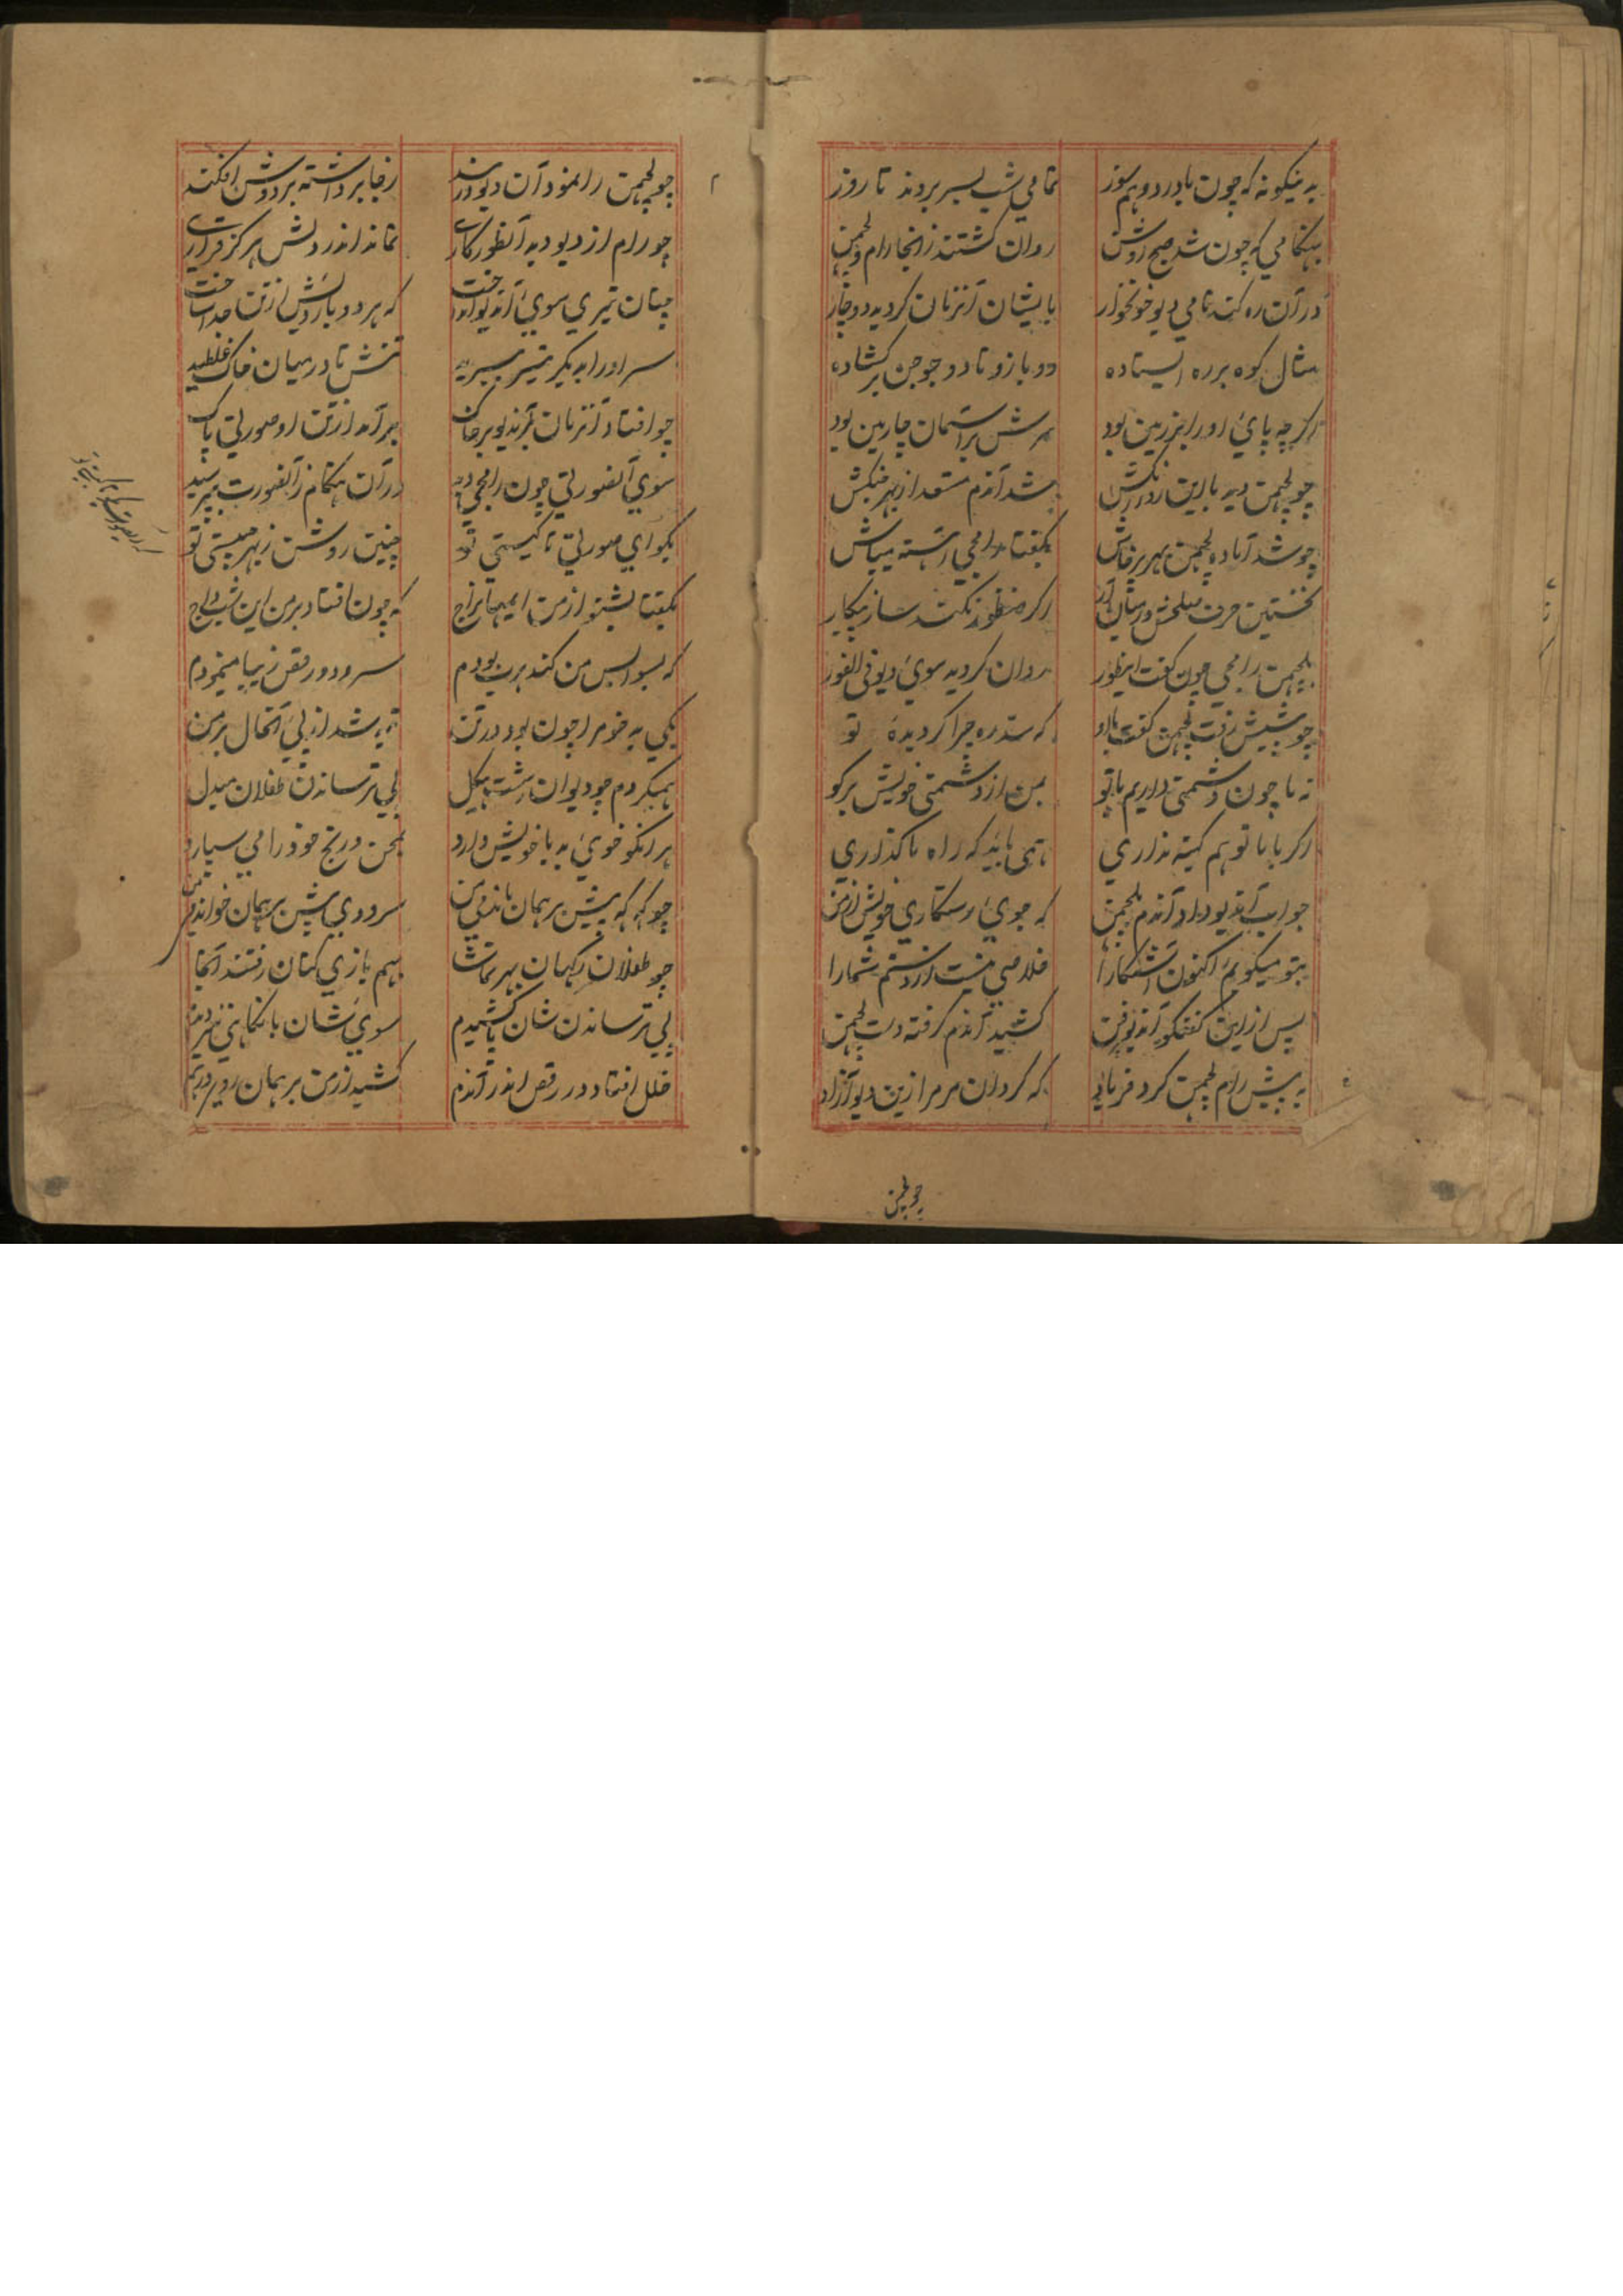 به نیکونه که چون با درد و هم سوز
تمامی شب بسر بردند تا روز
بهنگامی که چون شد صبح روشن
روان کشتند زانجا رام و لچمن
در آن ره کنه نامی دیو خونخوار
بایشان آنزمان کردیده دوچار
مثال کوه بر ره ایستاده
دو بازو تا دو جوجن بر کشاده
اکر چه پای او را بر زمین بود
سرش بر آسمان چارمین بود
چو لچمن دید با این
شد آندم مستعد از بهر جنکش
چو شد آماده لچمن بهر پرخاش
بکفتا رامجی آهسته میباش
نخستین حرف صلحش در میان آر
اکر منظور نکند ساز پیکار
بلچمن رامجی چون کفت اینطور
روان کردید سوی دیو فی الفور
چو پیشش رفت لچمن کفت با او
که سد ره چرا کردیده تو
نه ما چون دشمنی داریم با تو
بمن از دشمنی خویش برکو
اکر با ما تو هم کینه نداری
همی باید که راه ما کذاری
جواب آندیو داد آندم بلچمن
که جوی رستکاری خویش از من
بتو میکویم اکنون آشکارا
خلاصی نیست از دستم شما را
پس از این کفتکو آندیو رفت
کشید آندم کرفته دست لچمن
به پیش رام لچمن کرد فریاد
که کردان مر مرا زین دیو آزاد
چو لچمن
چو لچمن را نمود آن دیو در بند
ز جا برداشته بر دوش افکند
چو رام از دیو دید آنطور کاری
نماند اندر دلش هرکز قراری
چنان تیری سوی آندیو انداخت
که هر دو بازویش از تن جدا ساخت
سر او را به یکر تیر ببرید
تنش تا در میان خاک غلطید
چو افتاد آنزمان آندیو بر خاک
برآمد از تن او صورتی پاک
سوی آنصورتی چون رامجی دید
در آن هنکام ز آنصورت بپرسید
بکو ای صورتی تا کیستی تو
چنین روشن ز بهر چیستی تو
بکفتا بشنو از من
که چون افتاد بر من این
که بسواس من کندهرب بودم
سرود و رقص زیبا مینمودم
یکی بد خو مرا چون بود در تن
تبه شد از پی آنحال بر من
همیکردم چو دیوان زشت هیکل
پی ترساندن طفلان مبدل
هر آنکو خوی بد با خویش دارد
بحزن و رنج خود را می سپارد
چو که که پیش برهمان
سرودی پیش برهمان خواندم من
چو طفلان رکهان بهر تماشا
بهم بازی کنان رفتند آنجا
پی ترساندن شان
سوی شان با نکاهی
خلل افتاد در رقص اندر آندم
کشید از من برهمان روی درهم